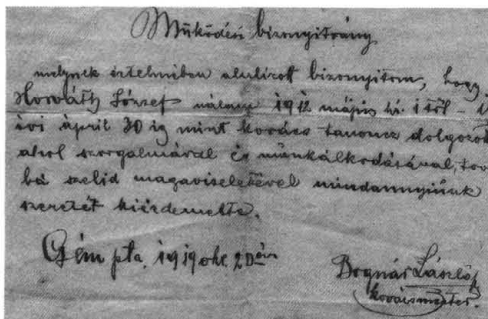 Működési bizonyítvány
melynek értelmében alulírott bizonyítom, hogy
Horváth József nálam 1912 május hó 1től 1
évi április 30 ig mint kovács tanoncz dolgozott
ahol szorgalmával és munkálkodásával, tov
bá szelid magaviseletével mindannyiunk
szeretét kiérdemelte.
Gém pta. 1919 okt. 20 án
Bognár László
kovácsmester.